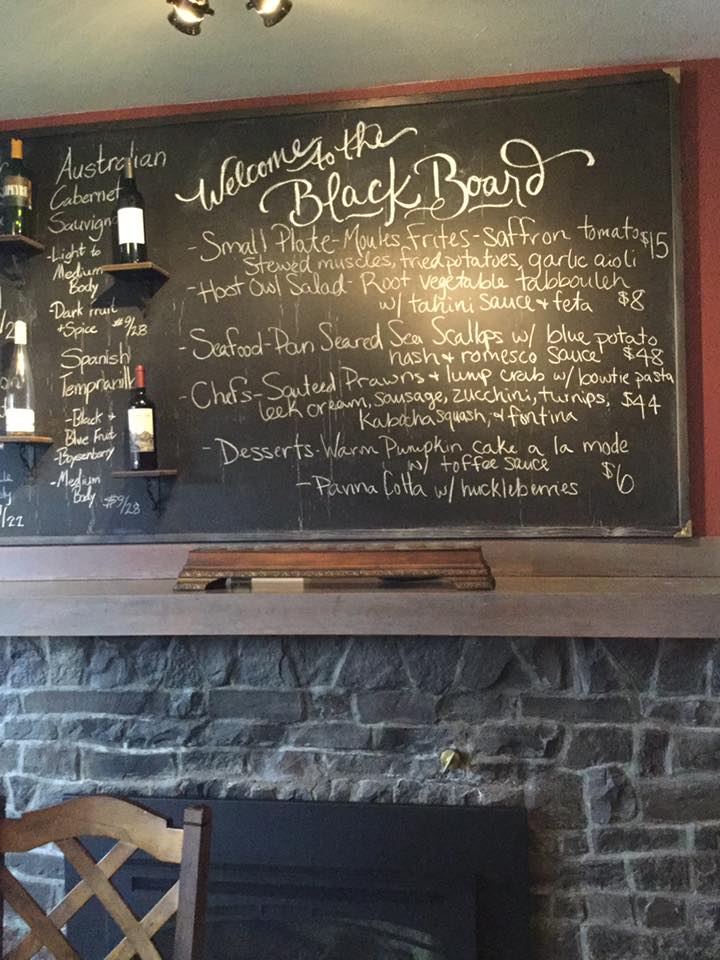 Australian
Cabernet
Sauvign
-Light to
Medium
Body
-Dark fruit
+Spice $9/28
Spanish
Tempranill
-Black +
Blue Fruit
-Boysenberry
-Medium
Body $9/28
/22
Welcome to the
Black Board
-Small Plate-Moules Frites-Saffron tomato $15
Stewed muscles, fried potatoes, garlic aioli
-Hoot Owl Salad- Root vegetable tabbouleh
w/ tahini sauce + feta $8
-Seafood-Pan Seared Sea Scallops w/ blue potato
hash + romesco sauce $48
-Chefs-Sauteed Prawns + lump crab w/ bowtie pasta
leek cream, sausage, zucchini, turnips, $44
Kabocha squash, + fontina
-Desserts-Warm Pumpkin Cake a la mode
w/ toffee sauce $6
-Panna Cotta w/ huckleberries